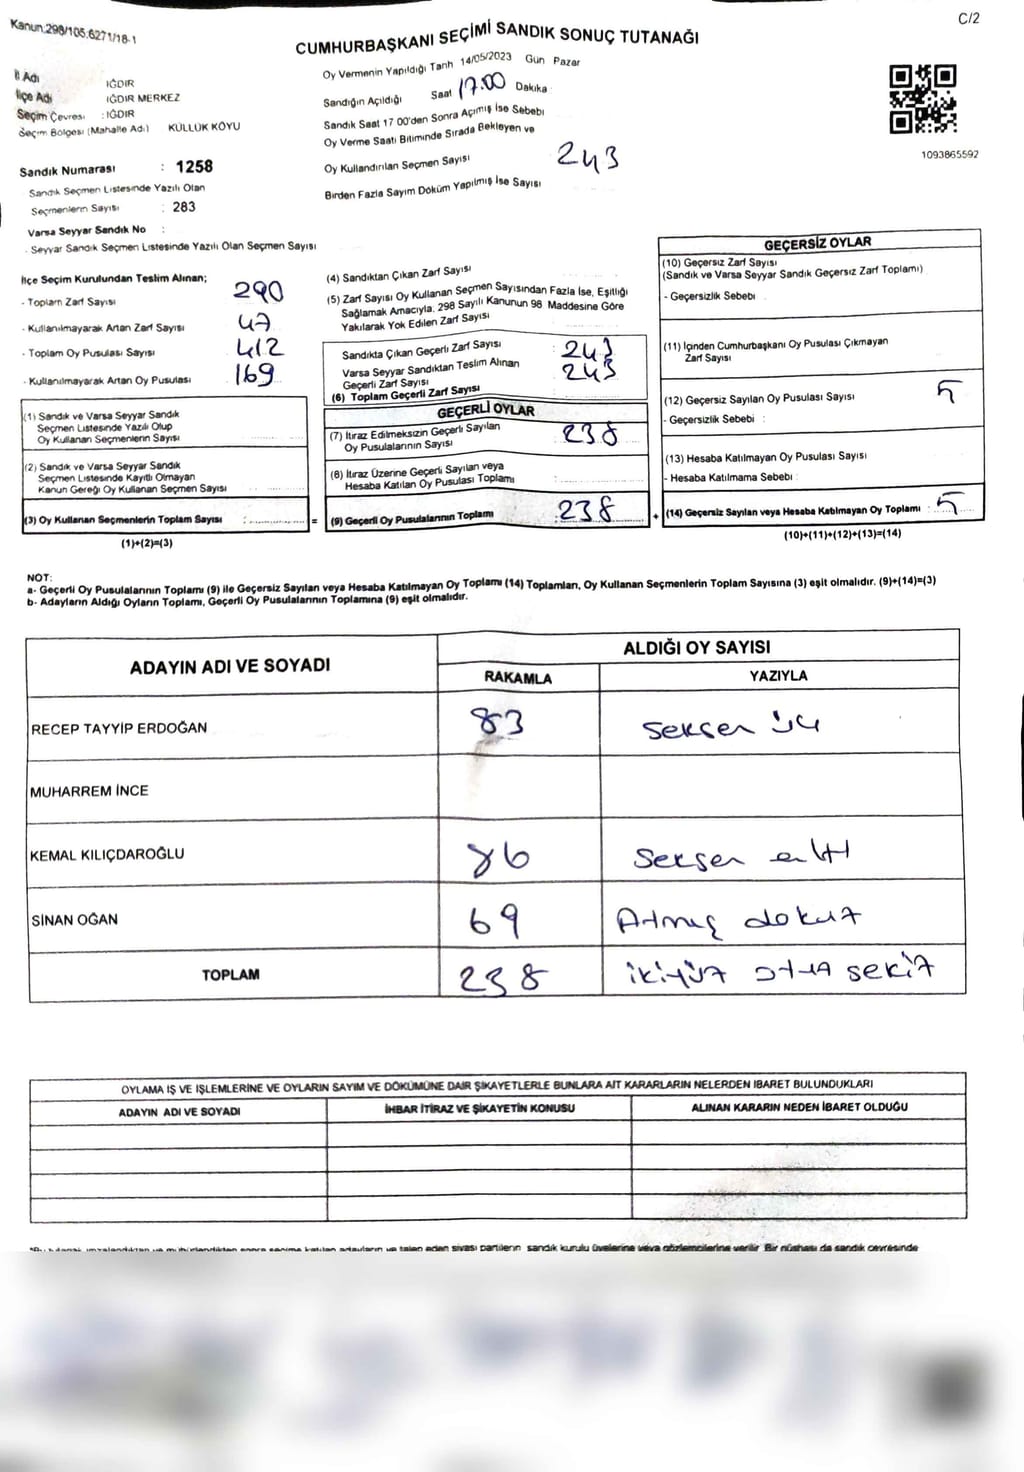 Kanun:298/105.6271/18-1
C/2
CUMHURBAŞKANI SEÇİMİ SANDIK SONUÇ TUTANAĞI
İl Adı IĞDIR
İlçe Adı IĞDIR MERKEZ
Seçim Çevresi : IĞDIR
Seçim Bölgesi (Mahalle Adı) KÜLLÜK KÖYÜ
Sandık Numarası : 1258
Sandık Seçmen Listesinde Yazılı Olan
Seçmenlerin Sayısı : 283
Varsa Seyyar Sandık No :
- Seyyar Sandık Seçmen Listesinde Yazılı Olan Seçmen Sayısı
Oy Vermenin Yapıldığı Tarih 14/05/2023 Gün Pazar
Sandığın Açıldığı Saat 17.00 Dakika
Sandık Saat 17 00'den Sonra Açılmış İse Sebebi
Oy Verme Saati Bitiminde Sırada Bekleyen ve
Oy Kullandırılan Seçmen Sayısı 243
Birden Fazla Sayım Döküm Yapılmış İse Sayısı
1093865592
İlçe Seçim Kurulundan Teslim Alınan;
- Toplam Zarf Sayısı 290
- Kullanılmayarak Artan Zarf Sayısı 47
- Toplam Oy Pusulası Sayısı 412
- Kullanılmayarak Artan Oy Pusulası 169
(1) Sandık ve Varsa Seyyar Sandık
Seçmen Listesinde Yazılı Olup
Oy Kullanan Seçmenlerin Sayısı
(2) Sandık ve Varsa Seyyar Sandık
Seçmen Listesinde Kayıtlı Olmayan
Kanun Gereği Oy Kullanan Seçmen Sayısı
(3) Oy Kullanan Seçmenlerin Toplam Sayısı : =
(1)+(2)=(3)
(4) Sandıktan Çıkan Zarf Sayısı
(5) Zarf Sayısı Oy Kullanan Seçmen Sayısından Fazla İse, Eşitliği
Sağlamak Amacıyla, 298 Sayılı Kanunun 98 Maddesine Göre
Yakılarak Yok Edilen Zarf Sayısı
Sandıkta Çıkan Geçerli Zarf Sayısı : 243
Varsa Seyyar Sandıktan Teslim Alınan
Geçerli Zarf Sayısı
(6) Toplam Geçerli Zarf Sayısı 243
GEÇERLİ OYLAR
(7) İtiraz Edilmeksizin Geçerli Sayılan
Oy Pusulalarının Sayısı 238
(8) İtiraz Üzerine Geçerli Sayılan veya
Hesaba Katılan Oy Pusulası Toplamı
(9) Geçerli Oy Pusulalarının Toplamı 238 +
GEÇERSİZ OYLAR
(10) Geçersiz Zarf Sayısı
(Sandık ve Varsa Seyyar Sandık Geçersiz Zarf Toplamı)
- Geçersizlik Sebebi
(11) İçinden Cumhurbaşkanı Oy Pusulası Çıkmayan
Zarf Sayısı
(12) Geçersiz Sayılan Oy Pusulası Sayısı 5
- Geçersizlik Sebebi :
(13) Hesaba Katılmayan Oy Pusulası Sayısı
- Hesaba Katılmama Sebebi :
(14) Geçersiz Sayılan veya Hesaba Katılmayan Oy Toplamı : 5
(10)+(11)+(12)+(13)=(14)
NOT:
a- Geçerli Oy Pusulalarının Toplamı (9) ile Geçersiz Sayılan veya Hesaba Katılmayan Oy Toplamı (14) Toplamları, Oy Kullanan Seçmenlerin Toplam Sayısına (3) eşit olmalıdır. (9)+(14)=(3)
b- Adayların Aldığı Oyların Toplamı, Geçerli Oy Pusulalarının Toplamına (9) eşit olmalıdır.
ADAYIN ADI VE SOYADI
ALDIĞI OY SAYISI
RAKAMLA YAZIYLA
RECEP TAYYİP ERDOĞAN 83 Seksen üç
MUHARREM İNCE
KEMAL KILIÇDAROĞLU 86 Seksen altı
SİNAN OĞAN 69 Atmış dokuz
TOPLAM 238 ikiyüz otuz sekiz
OYLAMA İŞ VE İŞLEMLERİNE VE OYLARIN SAYIM VE DÖKÜMÜNE DAİR ŞİKAYETLERLE BUNLARA AİT KARARLARIN NELERDEN İBARET BULUNDUKLARI
ADAYIN ADI VE SOYADI İHBAR İTİRAZ VE ŞİKAYETİN KONUSU ALINAN KARARIN NEDEN İBARET OLDUĞU
*Bu tutanak imzalandıktan ve mühürlendikten sonra seçime katılan adayların ve talep eden siyasi partilerin sandık kurulu üyelerine veya gözlemcilerine verilir. Bir nüshası da sandık çevresinde